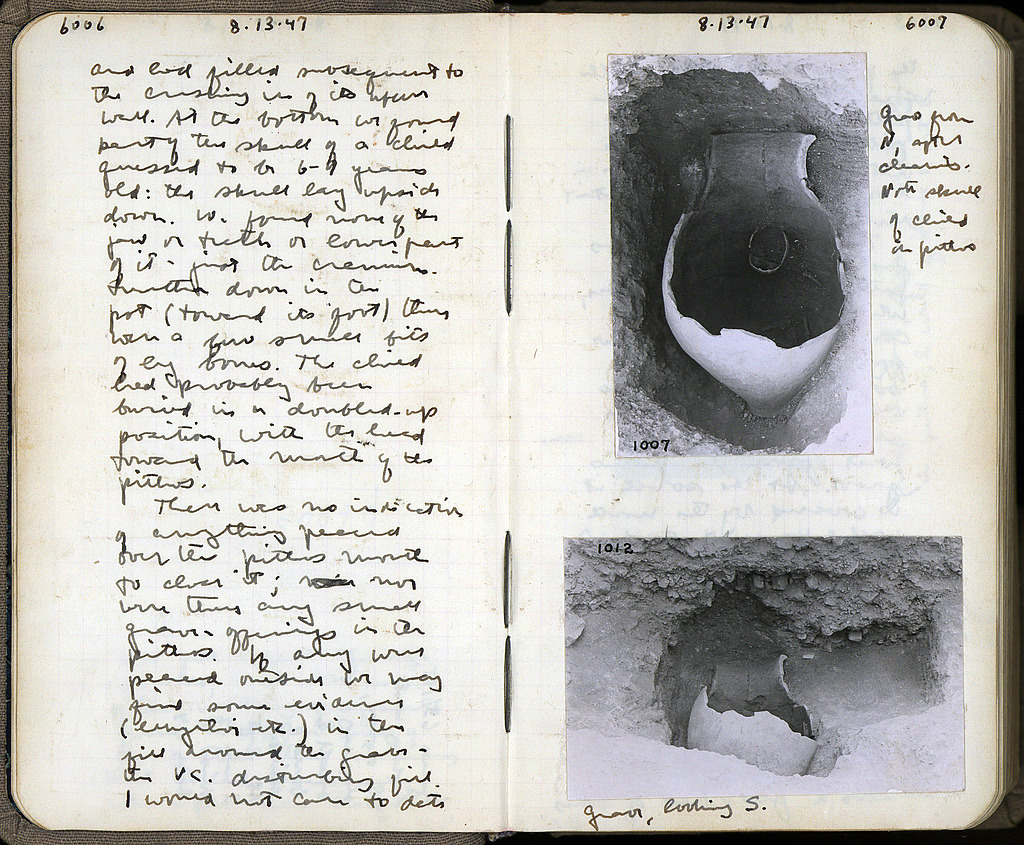 6006 8·13·47
and had filled subsequent to
the crushing in of its upper
wall. At the bottom we found
part of the skull of a child
guessed to be 6-9 years
old: the skull lay upside
down. We found none of the
jaw or teeth or lower part
of it - just the cranium.
Further down in the
pot (toward its foot) there
were a few small bits
of leg bones. The child
had probably been
buried in a doubled-up
position, with the head
toward the mouth of the
pithos.
There was no indication
of anything placed
over the pithos mouth
to close it; nor
were there any small
grave offerings in the
pithos. If any were
placed outside we may
find some evidence
(lekythoi etc.) in the
fill around the grave -
the disturbing fill.
I would not care to date
8·13·47 6007
Grave from
N, after
cleaning.
Note skull
of child
in pithos
1007
1012
Grave, looking S.